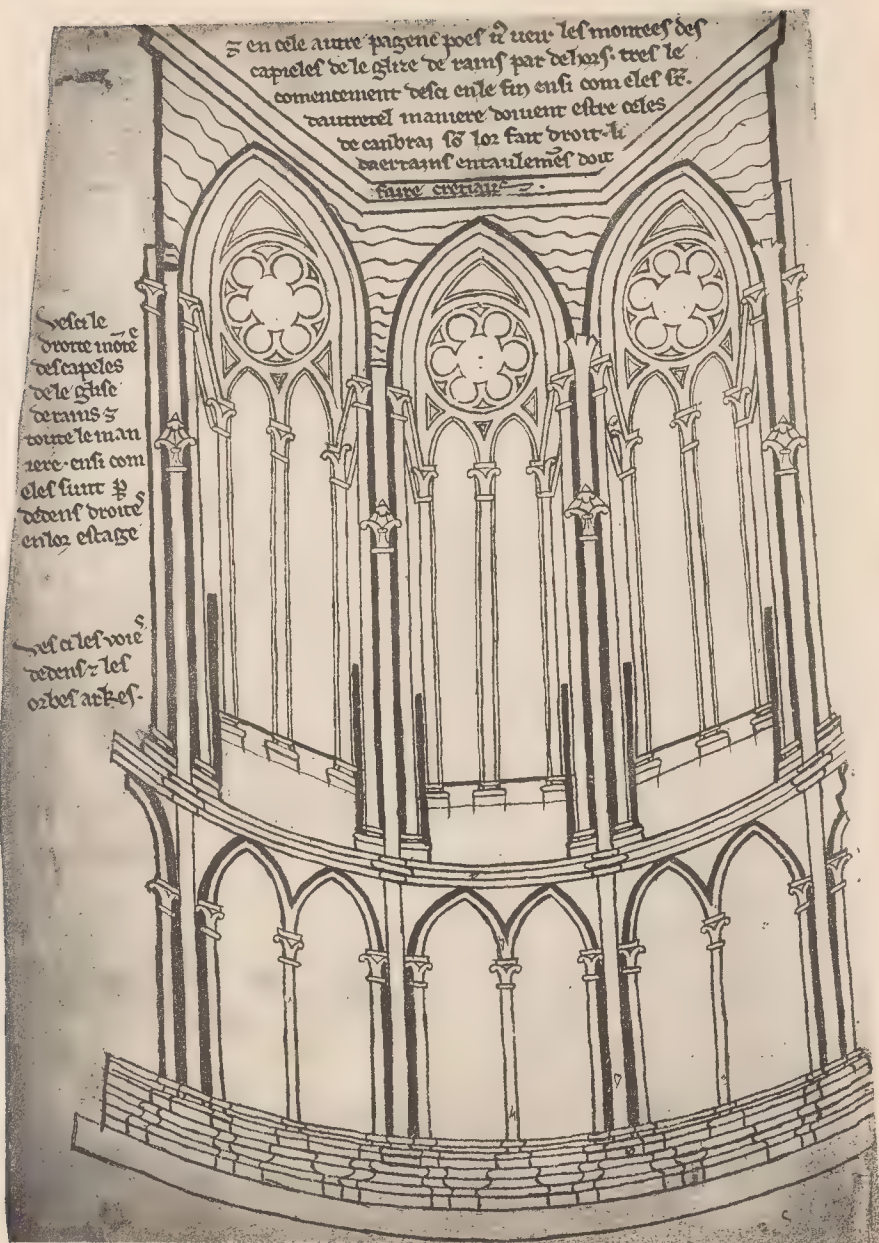 ⁊ en cele autre pagene poes v̄ veir les montees des
capieles de le glize de rains par dehors· tres le
comencement desci en le fin ensi com eles st̄·
dautretel maniere doivent estre celes
de canbrai sō lor fait droit· li
daerrains entaulemēs doit
faire creriaus
Vesci le
droite mōtee
des capeles
de le glise
de rains ⁊
toute le man
iere· ensi com
eles sunt ꝑ
dedens droites
en lor estage
Ves ci les voies
dedens ⁊ les
orbes arkes·